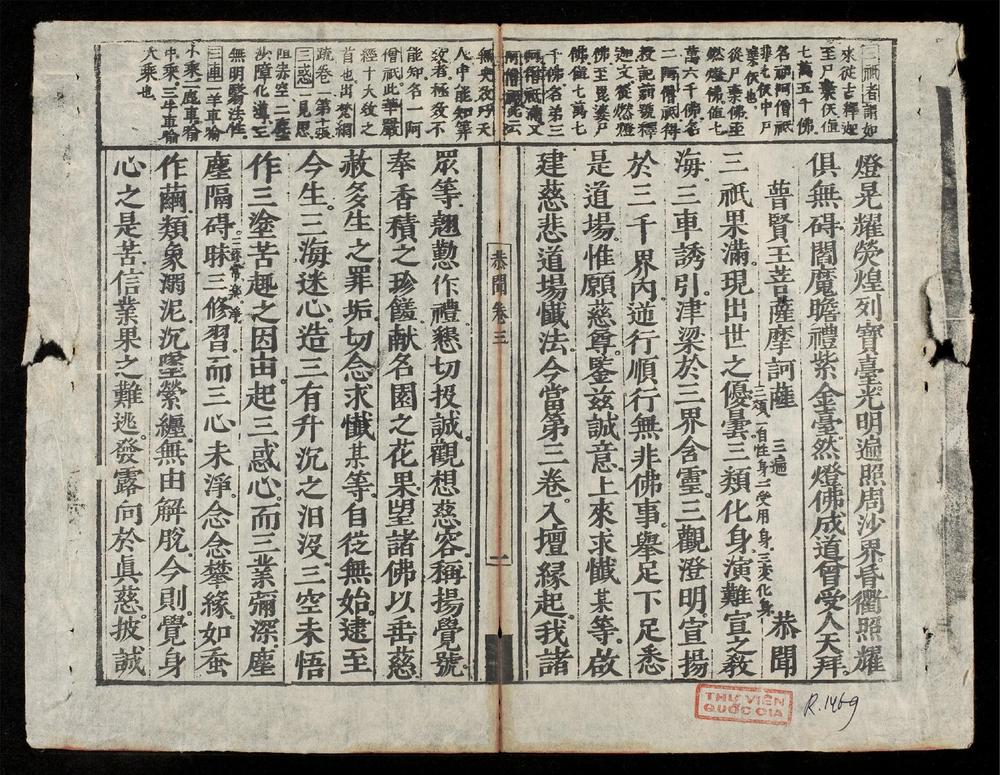 三祇者謂如
來從古釋迦
至尸棄佛值
七萬五千佛
名一阿僧祇
從尸棄佛至
然燈佛值七
萬六千佛名
二阿僧祇得
授記前號釋
迦文從然燈
佛至毘婆尸
佛值七萬七
千佛名第三
阿僧祇滿又
阿僧祇此云
無央數呼天
人中能知算
數者極數不
能知名一阿
僧祇此華嚴
經十大數之
首也出梵網
疏卷二第十張
三惑一見思
沙障化導三
無明翳法性
三車一羊車喻
小乘二鹿車喻
中乘三牛車喻
大乘也
燈晃耀熒煌列寶臺光明遍照周沙界昏衢照耀
俱無碍閻魔瞻禮紫金臺然燈佛成道曾受人天拜
普賢王菩薩摩訶薩 三遍 恭聞
三祇果滿現出世之優曇三類化身演難宣之教
三類一自性身二受用身三變化身
海三車誘引津梁於三界含靈三觀澄明宣揚
於三千界內逆行順行無非佛事舉足下足悉
是道場惟願慈尊鑒茲誠意上來求懺某等啟
建慈悲道場懺法今當第三卷入壇緣起我諸
恭聞卷三
一
眾等翹懃作禮懇切投誠觀想慈容稱揚覺號
奉香積之珍饈献名園之花果望諸佛以垂慈
赦多生之罪垢切念求懺某等自從無始逮至
今生三海迷心造三有升沉之汨沒三空未悟
作三塗苦趣之因由起三惑心而三業彌深塵
塵隔碍昧三修習而三心未淨念念攀緣如蚕
三修常樂淨
作繭類象溺泥沉墜縈纏無由解脫今則覺身
心之是苦信業果之難逃發露向於真慈披誠
THƯ VIỆN
QUỐC GIA
R.1469